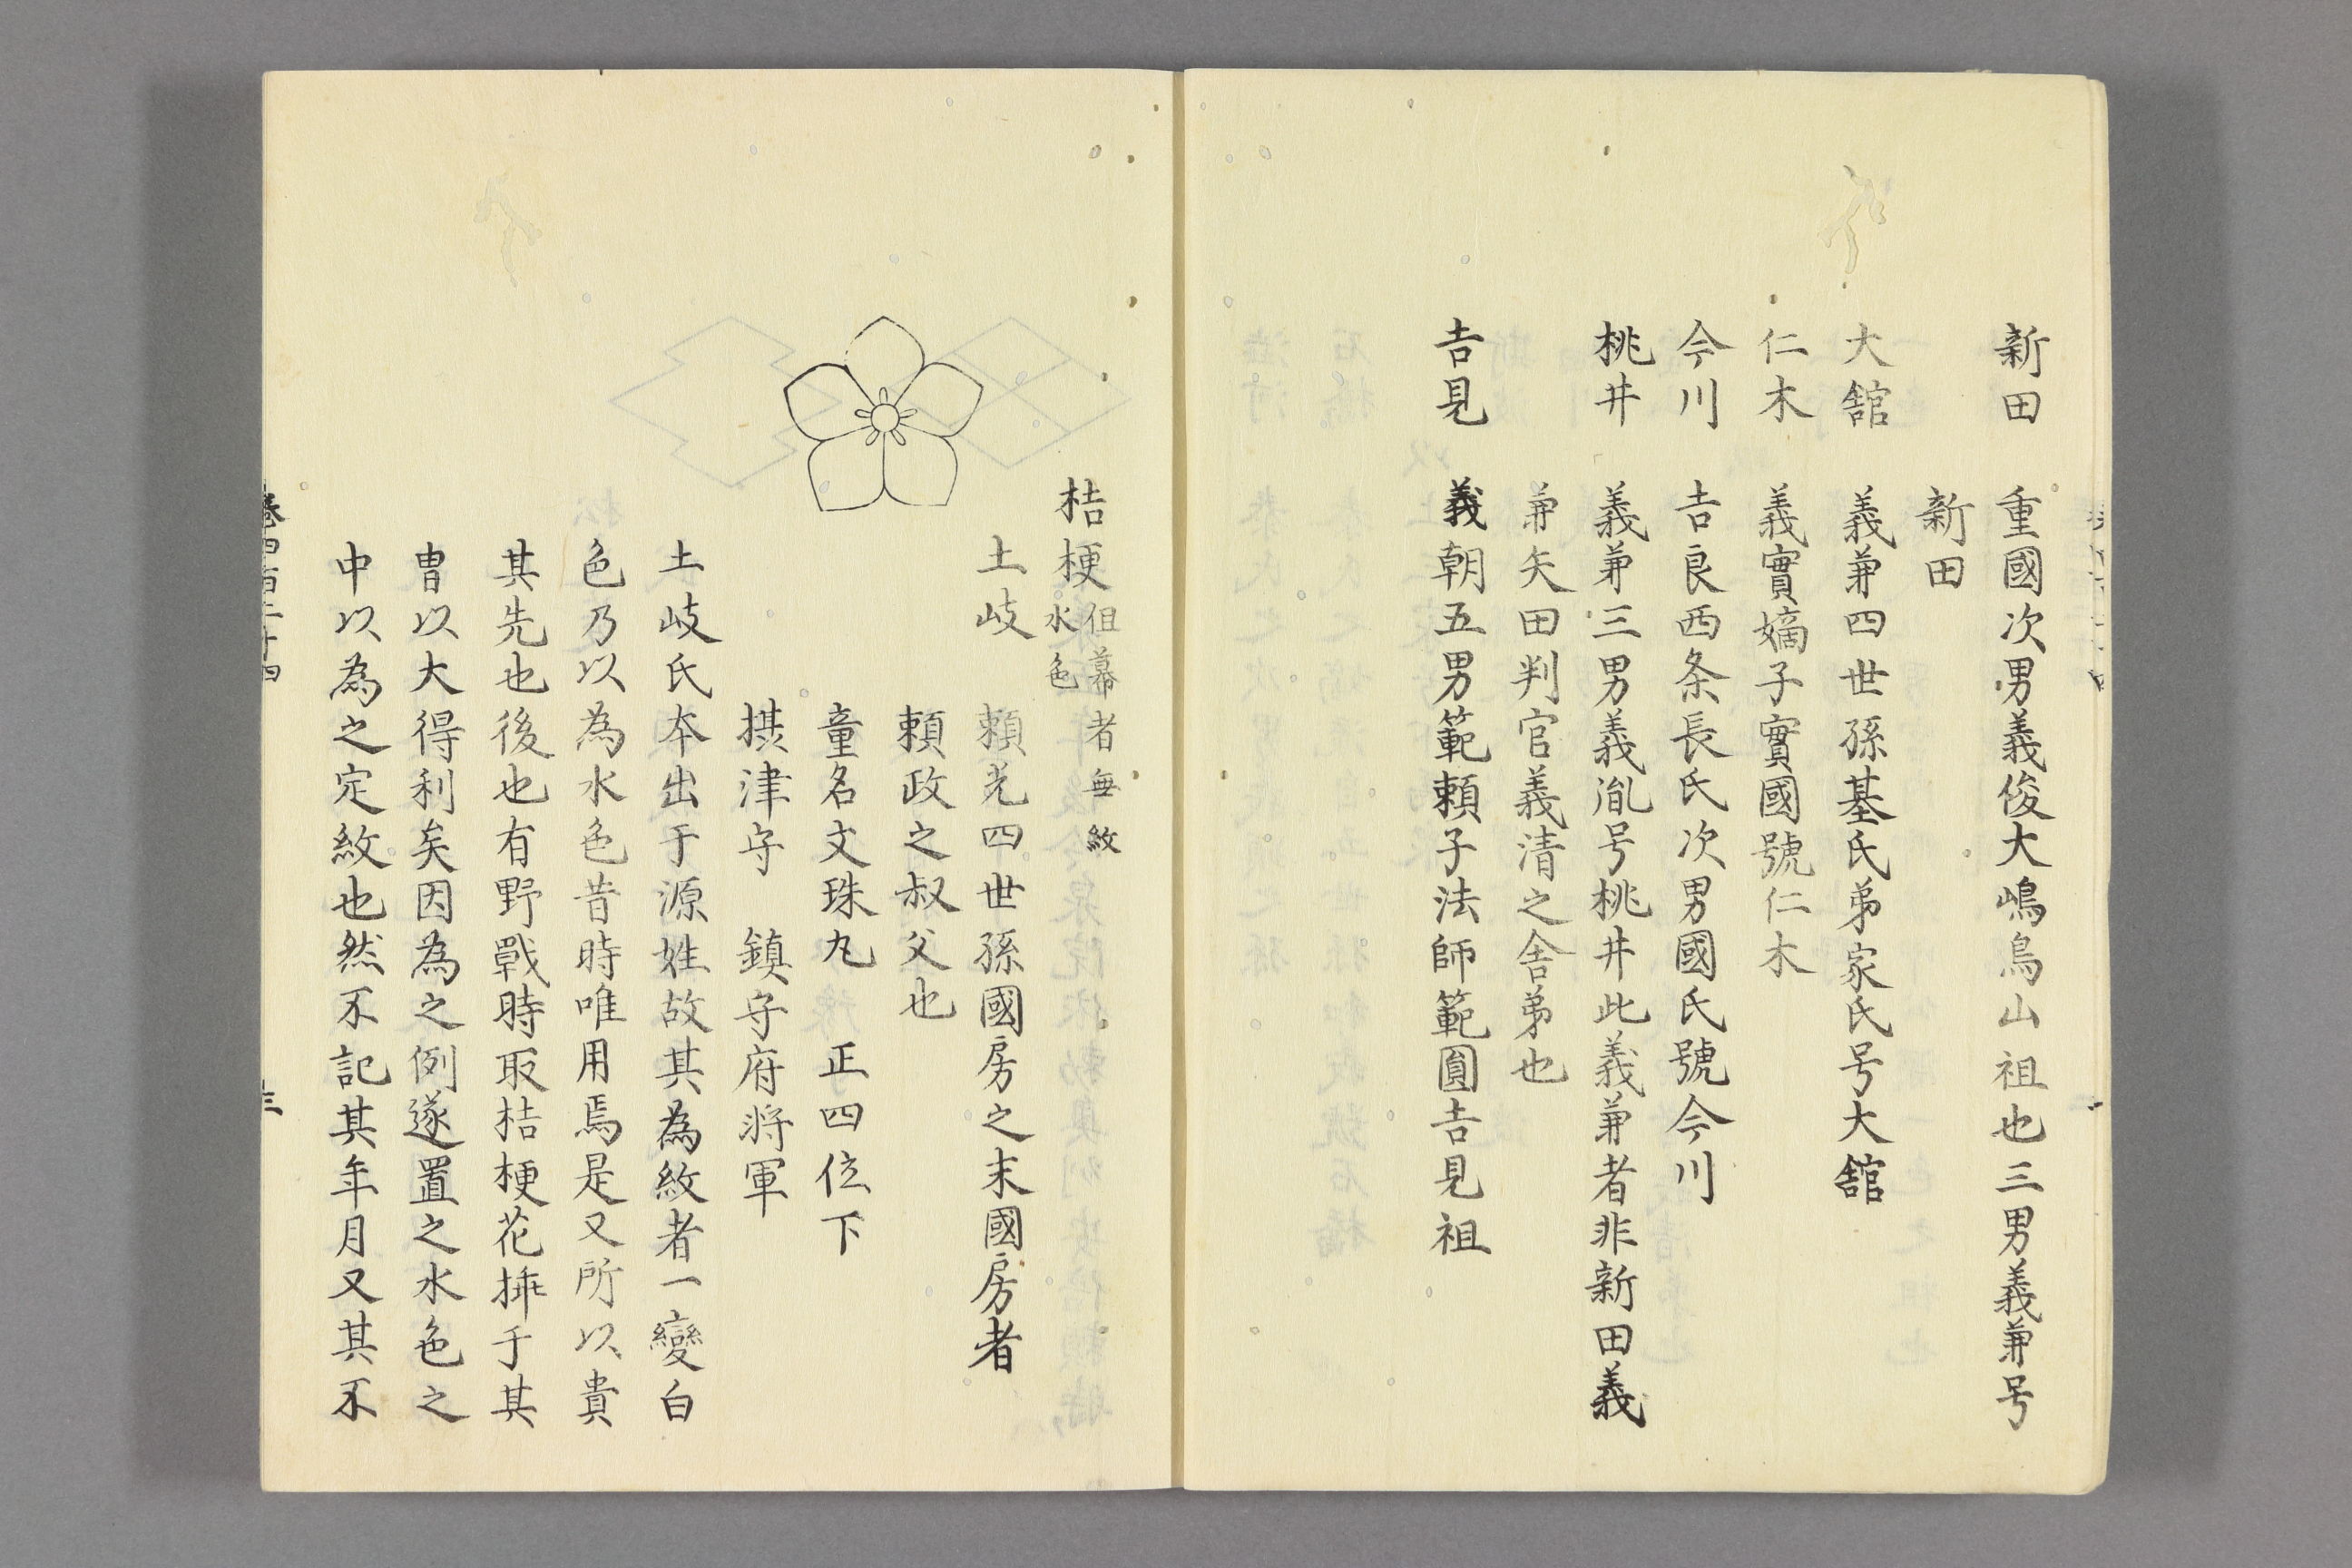 新田　重國次男義俊大嶋鳥山祖也三男義兼号
新田
大舘　義兼四世孫基氏弟家氏号大舘
仁木　義實嫡子實國號仁木
今川　吉良西条長氏次男國氏號今川
桃井　義兼三男義胤号桃井此義兼者非新田義
兼矢田判官義清之舎弟也
吉見　義朝五男範頼子法師範圓吉見祖
桔梗　但幕者無紋
水色
土岐　頼光四世孫國房之末國房者
頼政之叔父也
童名文珠丸　正四位下
摂津守　鎮守府将軍
土岐氏本出于源姓故其為紋者一變白
色乃以為水色昔時唯用焉是又所以貴
其先也後也有野戰時取桔梗花挿于其
冑以大得利矣因為之例遂置之水色之
中以為之定紋也然不記其年月又其不
巻四百二十四　三